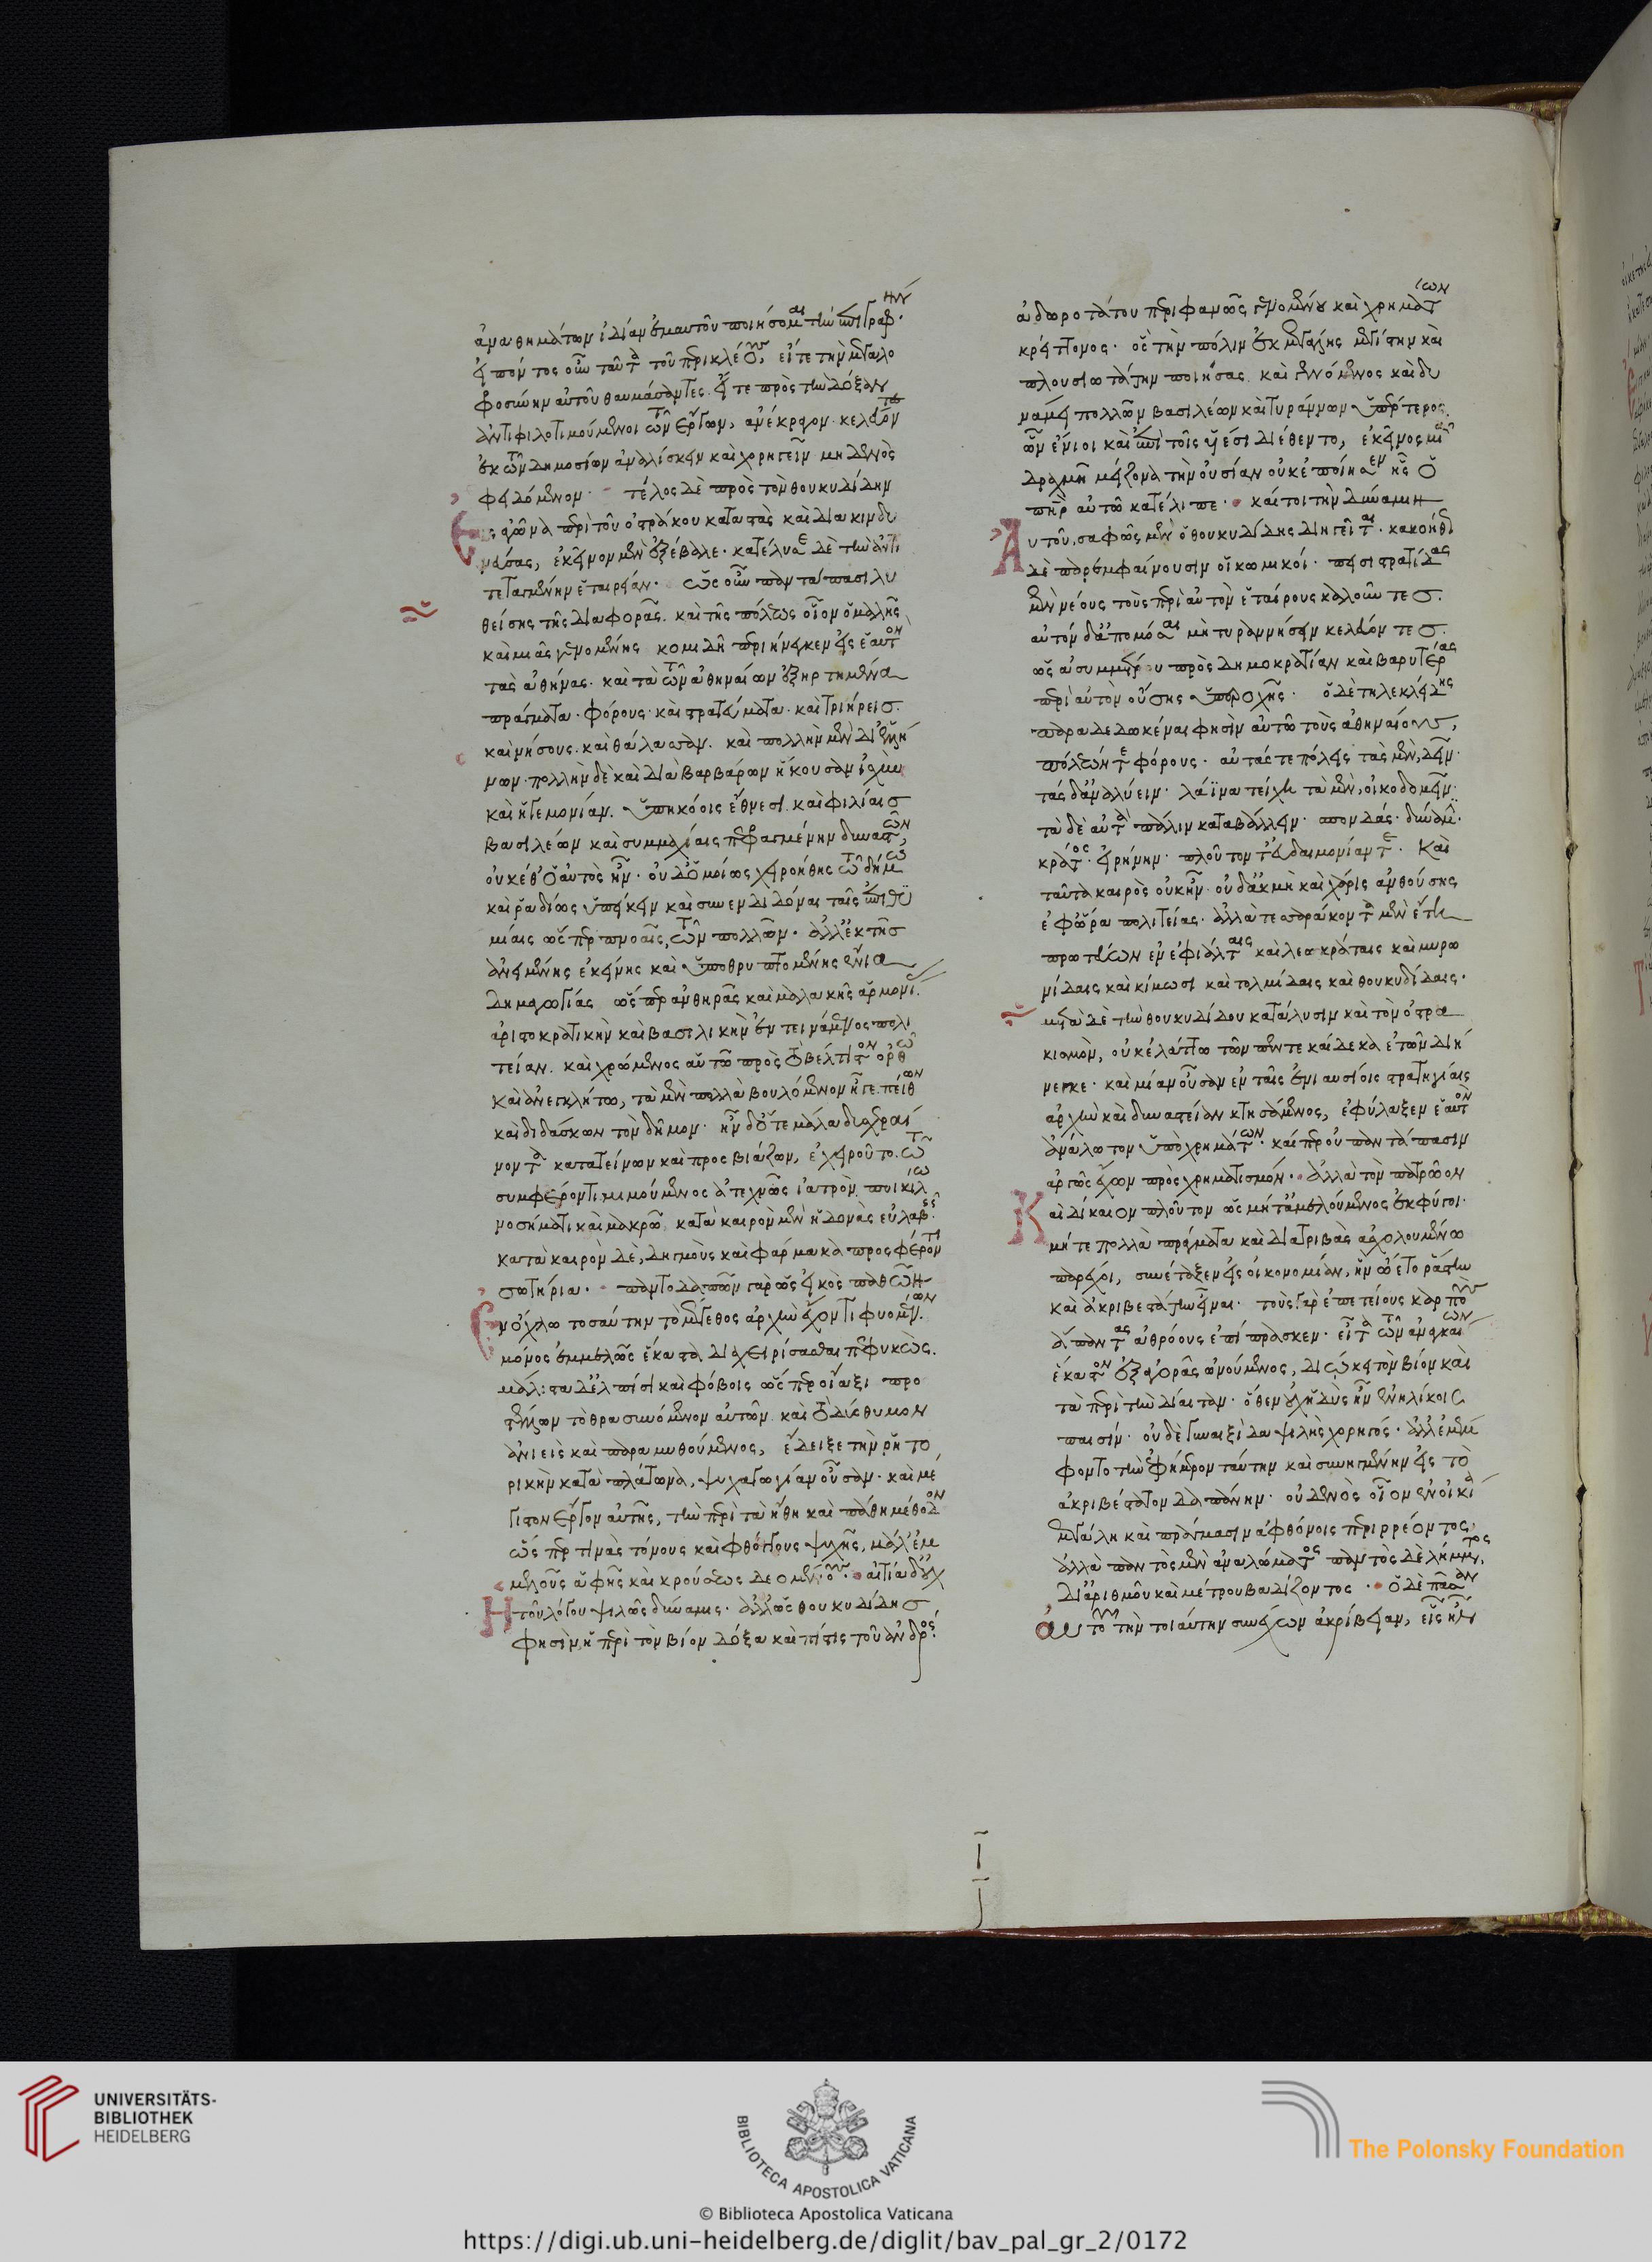 ἀναθημάτων ἰδίαν ἐμαυτοῦ ποιήσομαι τὴν ἐπιγραφήν.
εἰπόντος οὖν ταῦτα τοῦ περικλέους, εἴτε τὴν μεγαλο
φροσύνην αὐτοῦ θαυμάσαντες. εἴτε πρὸς τὴν δόξαν
ἀντιφιλοτιμούμενοι τῶν ἔργων, ἀνέκραγον κελεύοντες
ἐκ τῶν δημοσίων ἀναλίσκειν καὶ χορηγεῖν μηδενὸς
φειδόμενον. τέλος δὲ πρὸς τὸν θουκυδίδην
εἰς ἀγῶνα περὶ τοῦ ὀστράκου καταστὰς καὶ διακινδυ
νεύσας, ἐκεῖνον μὲν ἐξέβαλε. κατέλυσε δὲ τὴν ἀντι
τεταγμένην ἑταιρείαν. ὡς οὖν παντάπασι λυ
θείσης τῆς διαφορᾶς. καὶ τῆς πόλεως οἷον ὁμαλῆς
καὶ μιᾶς γενομένης κομιδῆ περιήνεγκεν εἰς ἑαυτὸν
τὰς ἀθήνας. καὶ τὰ τῶν ἀθηναίων ἐξηρτημένα
πράγματα. φόρους. καὶ στρατεύματα. καὶ τριήρεις.
καὶ νήσους. καὶ θάλασσαν. καὶ πολλὴν μὲν δι' ἑλλή
νων. πολλὴν δὲ καὶ διὰ βαρβάρων ἥκουσαν ἰσχὺν
καὶ ἡγεμονίαν. ὑπηκόοις ἔθνεσι. καὶ φιλίαις
βασιλέων καὶ συμμαχίαις πεφραγμένην δυναστῶν,
οὐκέθ' ὁ αὐτὸς ἦν. οὐδ' ὁμοίως χειροήθης τῷ δήμῳ
καὶ ῥαδίως ὑπείκειν καὶ συνενδιδόναι ταῖς ἐπιθυ
μίαις ὥσπερ πνοαῖς, τῶν πολλῶν. ἀλλ' ἐκ τῆς
ἀνειμένης ἐκείνης καὶ ὑποθρυπτομένης ἔνια
δημαγωγίας ὥσπερ ἀνθηρᾶς καὶ μαλακῆς ἁρμονί.
ἀριστοκρατικὴν καὶ βασιλικὴν ἐντεινάμενος πολι
τείαν. καὶ χρώμενος αὐτῷ πρὸς τὸ βέλτιστον ὀρθῶ
καὶ ἀνεγκλήτῳ, τὰ μὲν πολλὰ βουλόμενον ἦγε. πείθων
καὶ διδάσκων τὸν δῆμον. ἦν δ' ὅτε μάλα δυσχεραί
νοντα κατατείνων καὶ προσβιάζων, ἐχειροῦτο. τῷ
συμφέροντι. μιμούμενος ἀτεχνῶς ἰατρὸν ποικίλῳ
νοσήματι καὶ μακρῷ κατὰ καιρὸν μὲν ἡδονὰς εὐλαβεῖς.
κατὰ καιρὸν δὲ, δηγμοὺς καὶ φάρμακα προσφέροντι
σωτήρια. παντοδαπῶν γὰρ ὡς εἰκὸς παθῶν
ἐν ὄχλῳ τοσαύτην τὸ μέγεθος ἀρχὴν ἔχοντι φυομένων.
μόνος ἐμμελῶς ἕκαστα διαχειρίσασθαι πεφυκὼς.
μάλιστα δ' ἐλπίσι καὶ φόβοις ὥσπερ οἴαξι προ
στέλλων τὸ θρασυνόμενον αὐτῶν καὶ τὸ δύσθυμον
ἀνιεὶς καὶ παραμυθούμενος, ἔδειξε τὴν ῥητο
ρικὴν κατὰ πλάτωνα, ψυχαγωγίαν οὖσαν. καὶ μέ
γιστον ἔργον αὐτῆς, τὴν περὶ τὰ ἤθη καὶ πάθη μέθοδον
ὥσπερ τινὰς τόνους καὶ φθόγγους ψυχῆς, μάλ' ἐμ
μελοῦς ἁφῆς καὶ κρούσεως δεομένους. αἰτία δ' οὐχ
ἡ τοῦ λόγου ψιλῶς δύναμις. ἀλλ' ὡς θουκυδίδης
φησὶν, ἡ περὶ τὸν βίον δόξα καὶ πίστις τοῦ ἀνδρός.
ἀδωροτάτου περιφανῶς γενομένου καὶ χρημάτων
κρείττονος. ὃς τὴν πόλιν ἐκ μεγάλης μεγίστην καὶ
πλουσιωτάτην ποιήσας. καὶ γενόμενος καὶ δυ
νάμει πολλῶν βασιλέων καὶ τυράννων ὑπέρτερος.
ὧν ἔνιοι καὶ ἐπὶ τοῖς υἱέσι διέθεντο, ἐκεῖνος μιᾷ
δραχμῇ μείζονα τὴν οὐσίαν οὐκ ἐποίησεν ἧς ὁ
πατὴρ αὐτῷ κατέλιπε. καίτοι τὴν δύναμιν
αὐτοῦ. σαφῶς μὲν ὁ θουκυδίδης διηγεῖται. κακοήθως
δὲ παρεμφαίνουσιν οἱ κωμικοί. πεισιστρατίδας
μὲν νέους τοὺς περὶ αὐτὸν ἑταίρους καλοῦντες.
αὐτὸν δ' ἀπομόσαι μὴ τυραννήσειν κελεύοντες.
ὡς ἀσυμμέτρου πρὸς δημοκρατίαν καὶ βαρυτέρας
περὶ αὐτὸν οὔσης ὑπεροχῆς. ὁ δὲ τηλεκλείδης
παραδεδωκέναι φησὶν αὐτῷ τοὺς ἀθηναίους,
πόλεών τε φόρους. αὐτάς τε πόλεις τὰς μὲν, δεῖν.
τὰς δ' ἀναλύειν. λάϊνα τείχη τὰ μὲν, οἰκοδομεῖν.
τὰ δὲ αὐτὰ πάλιν καταβάλλειν. σπονδάς. δύναμ.
κράτος. εἰρήνην. πλοῦτον τ' εὐδαιμονίαν τε. καὶ
ταῦτα καιρὸς οὐκ ἦν. οὐδ' ἀκμὴ καὶ χάρις ἀνθούσης
ἐφ' ὥρα πολιτείας. ἀλλὰ τεσσαράκοντα μὲν ἔτη
πρωτεύων ἐν ἐφιάλταις καὶ λεωκράταις καὶ μυρω
νίδαις καὶ κίμωσι καὶ τολμίδαις καὶ θουκυδίδαις.
μετὰ δὲ τὴν θουκυδίδου κατάλυσιν καὶ τὸν ὀστρα
κισμὸν, οὐκ ἐλάττω τῶν πεντεκαίδεκα ἐτῶν διή
νεγκε. καὶ μίαν οὖσαν ἐν ταῖς ἐνιαυσίοις στρατηγίαις
ἀρχὴν καὶ δυναστείαν κτησάμενος, ἐφύλαξεν ἑαυτὸν
ἀνάλωτον ὑπὸ χρημάτων. καίπερ οὐ παντάπασιν
ἀργῶς ἔχων πρὸς χρηματισμόν. ἀλλὰ τὸν πατρῷον
καὶ δίκαιον πλοῦτον ὡς μήτ' ἀμελούμενος ἐκφύγοι.
μήτε πολλὰ πράγματα καὶ διατριβὰς ἀσχολουμένῳ
παρέχοι, συνέταξεν εἰς οἰκονομίαν, ἣν ᾤετο ῥᾴστην
καὶ ἀκριβεστάτην εἶναι. τοὺς γὰρ ἐπετείους καρποὺς
ἅπαντας ἀθρόους ἐπίπρασκεν. εἶτα τῶν ἀναγκαίων
ἕκαστον ἐξ ἀγορᾶς ὠνούμενος, διῴκει τὸν βίον καὶ
τὰ περὶ τὴν δίαιταν. ὅθεν οὐχ ἡδὺς ἦν ἐνηλίκοις
παισίν. οὐδὲ γυναιξὶ δαψιλὴς χορηγός. ἀλλ' ἐμέμ
φοντο τὴν ἐφήμερον ταύτην καὶ συνηγμένην εἰς τὸ
ἀκριβέστατον δαπάνην. οὐδενὸς οἷον ἐν οἰκίᾳ
μεγάλη καὶ πράγμασιν ἀφθόνοις περιρρέοντος.
ἀλλὰ παντὸς μὲν ἀναλώματος παντὸς δὲ λήμματος,
δι' ἀριθμοῦ καὶ μέτρου βαδίζοντος. ὁ δὲ πᾶσαν
αὐτοῦ τὴν τοιαύτην συνέχων ἀκρίβειαν, εἷς ἦν
UNIVERSITÄTS-
BIBLIOTHEK
HEIDELBERG
BIBLIOTECA APOSTOLICA VATICANA
The Polonsky Foundation
© Biblioteca Apostolica Vaticana
https://digi.ub.uni-heidelberg.de/diglit/bav_pal_gr_2/0172